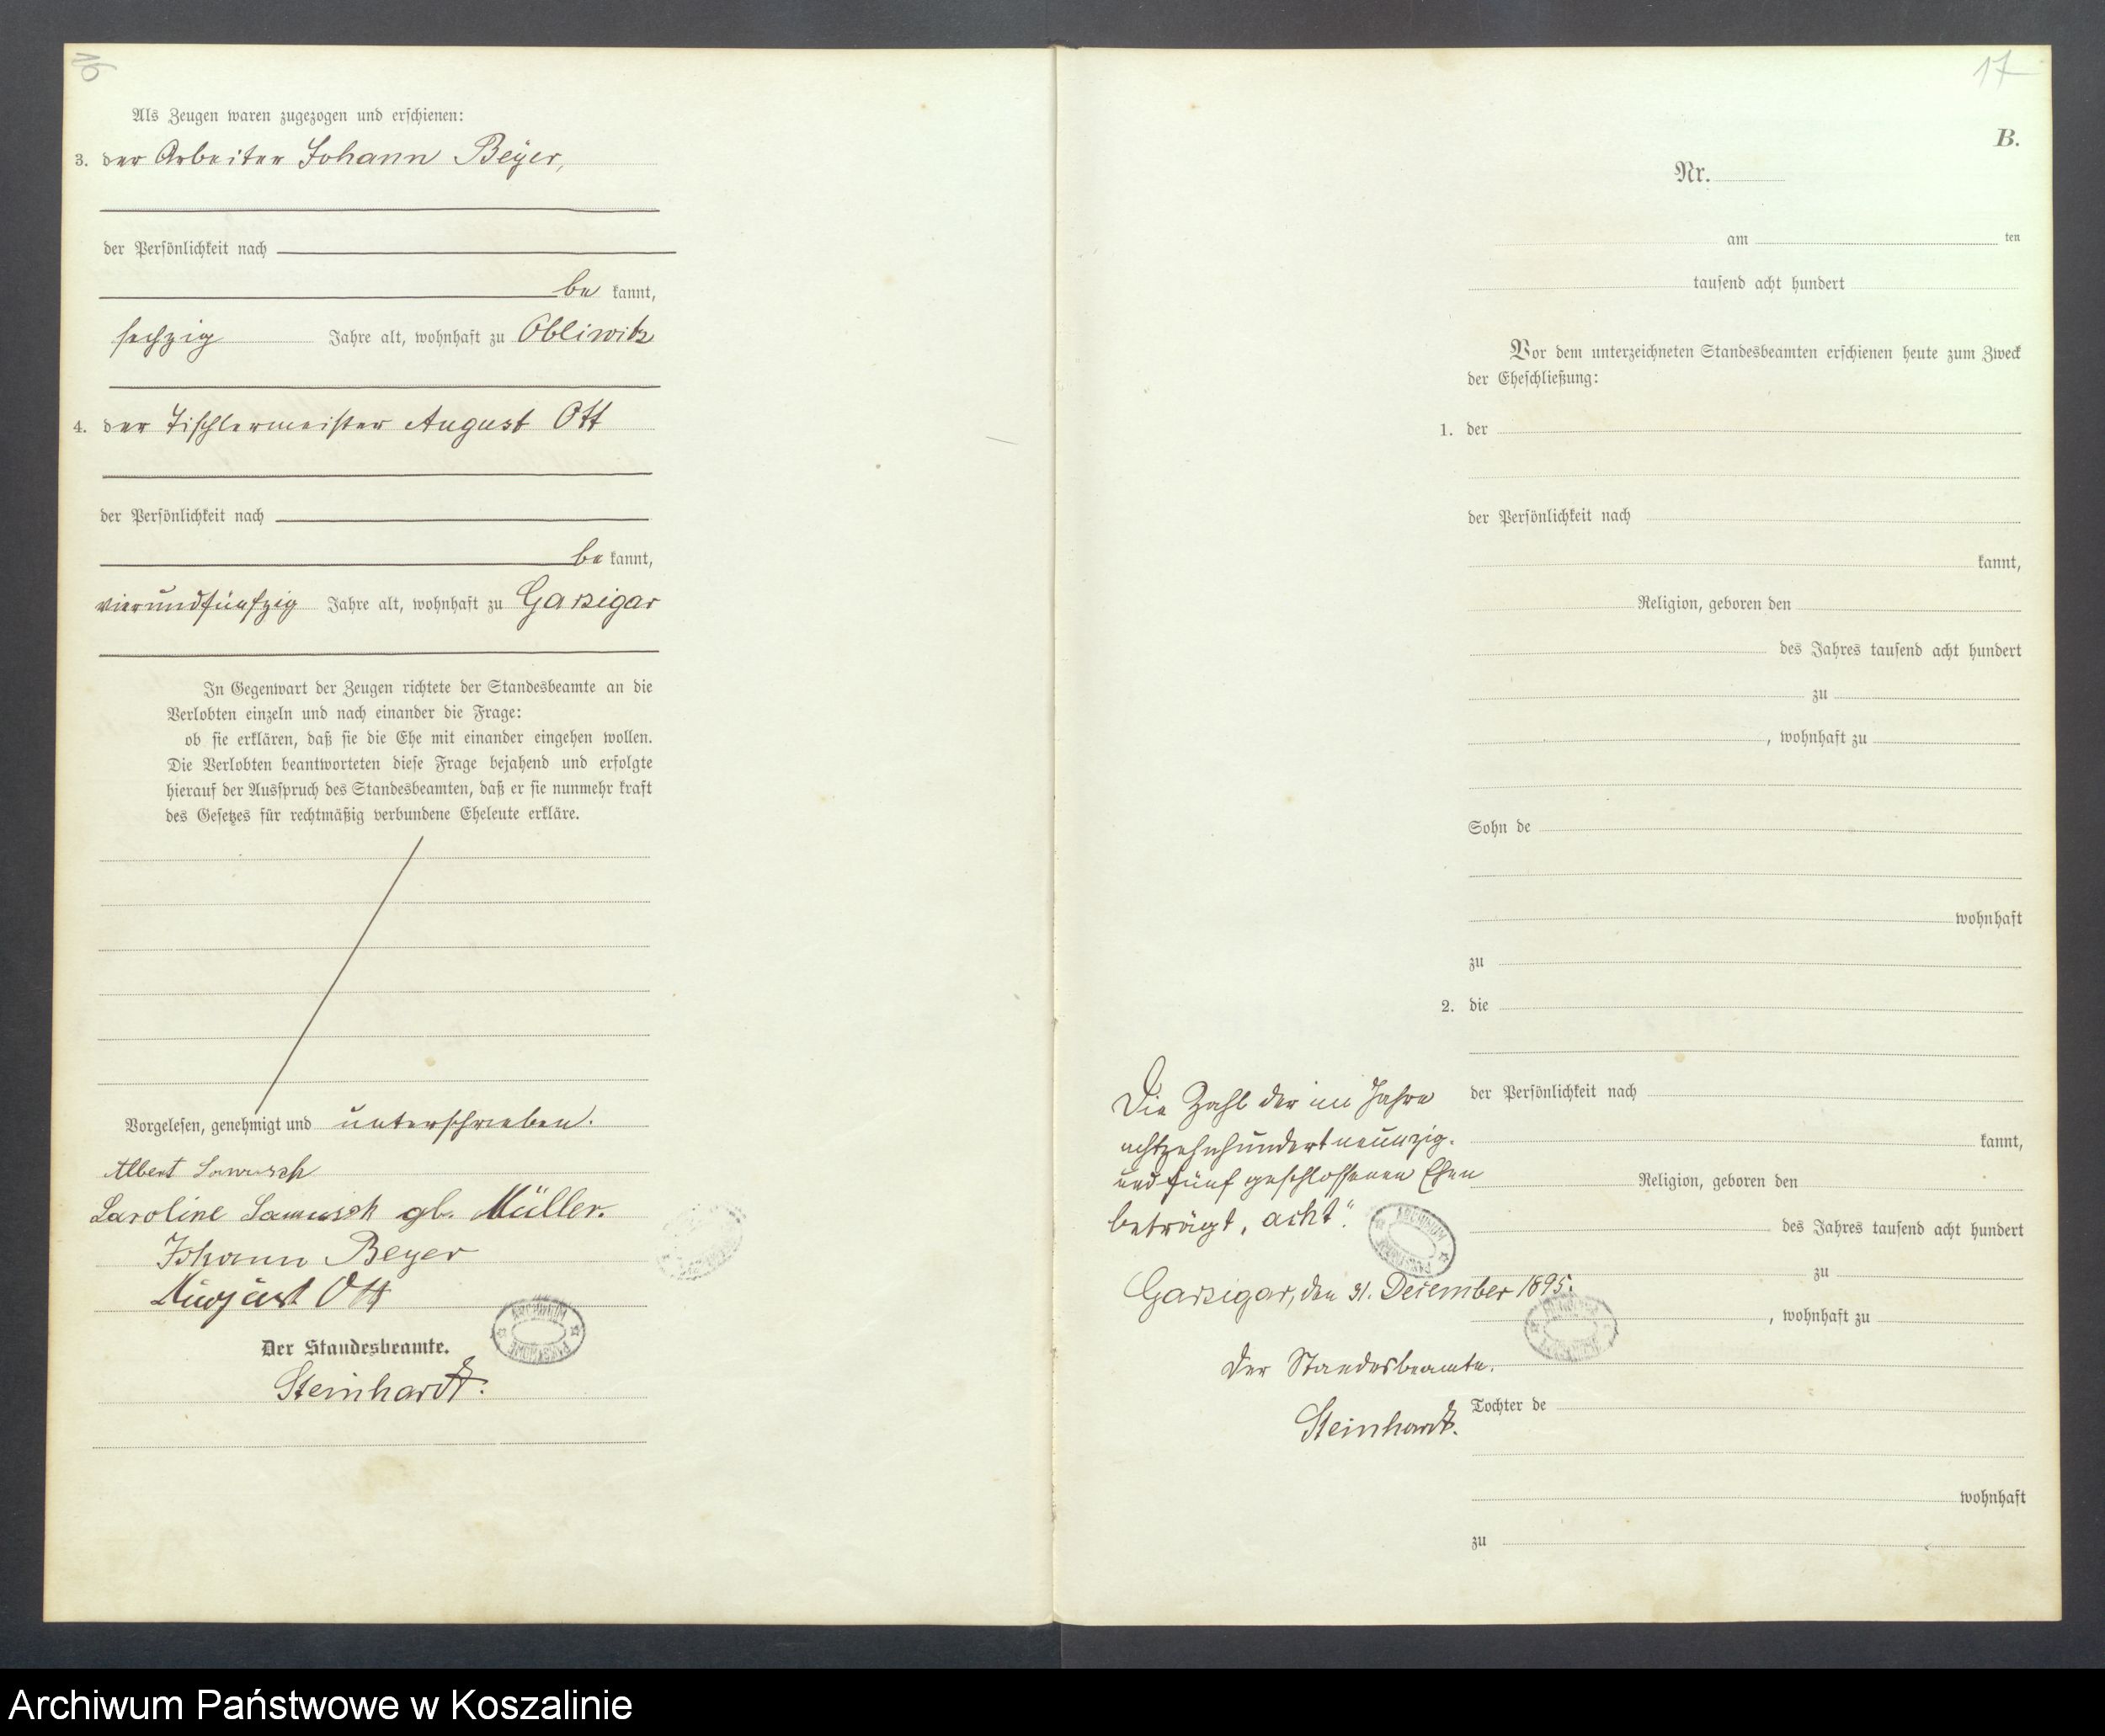 Als Zeugen waren zugezogen und erschienen:
3. der Arbeiter Johann Beyer,
der Persönlichkeit nach
be kannt,
sechzig Jahre alt, wohnhaft zu Obliwitz
4. der Tischlermeister August Ott
der Persönlichkeit nach
be kannt,
vierundfünfzig Jahre alt, wohnhaft zu Garzigar
In Gegenwart der Zeugen richtete der Standesbeamte an die
Verlobten einzeln und nach einander die Frage:
ob sie erklären, daß sie die Ehe mit einander eingehen wollen.
Die Verlobten beantworteten diese Frage bejahend und erfolgte
hierauf der Ausspruch des Standesbeamten, daß er sie nunmehr kraft
des Gesetzes für rechtmäßig verbundene Eheleute erkläre.
Vorgelesen, genehmigt und unterschrieben.
Albert
Karoline gb. Müller.
Johann Beyer
August Ott
Der Standesbeamte.
Steinhardt.
17
B.
Nr.
am ten
tausend acht hundert
Vor dem unterzeichneten Standesbeamten erschienen heute zum Zweck
der Eheschließung:
1. der
der Persönlichkeit nach
kannt,
Religion, geboren den
des Jahres tausend acht hundert
zu
, wohnhaft zu
Sohn de
wohnhaft
zu
2. die
der Persönlichkeit nach
kannt,
Religion, geboren den
des Jahres tausend acht hundert
zu
, wohnhaft zu
Tochter de
wohnhaft
zu
Die Zahl der im Jahre
achtzehnhundertneunzig-
und fünf geschlossenen Ehen
beträgt „acht“.
Garzigar, den 31. December 1895.
Der Standesbeamte.
Steinhardt.
ARCHIWUM PAŃSTWOWE
Archiwum Państwowe w Koszalinie